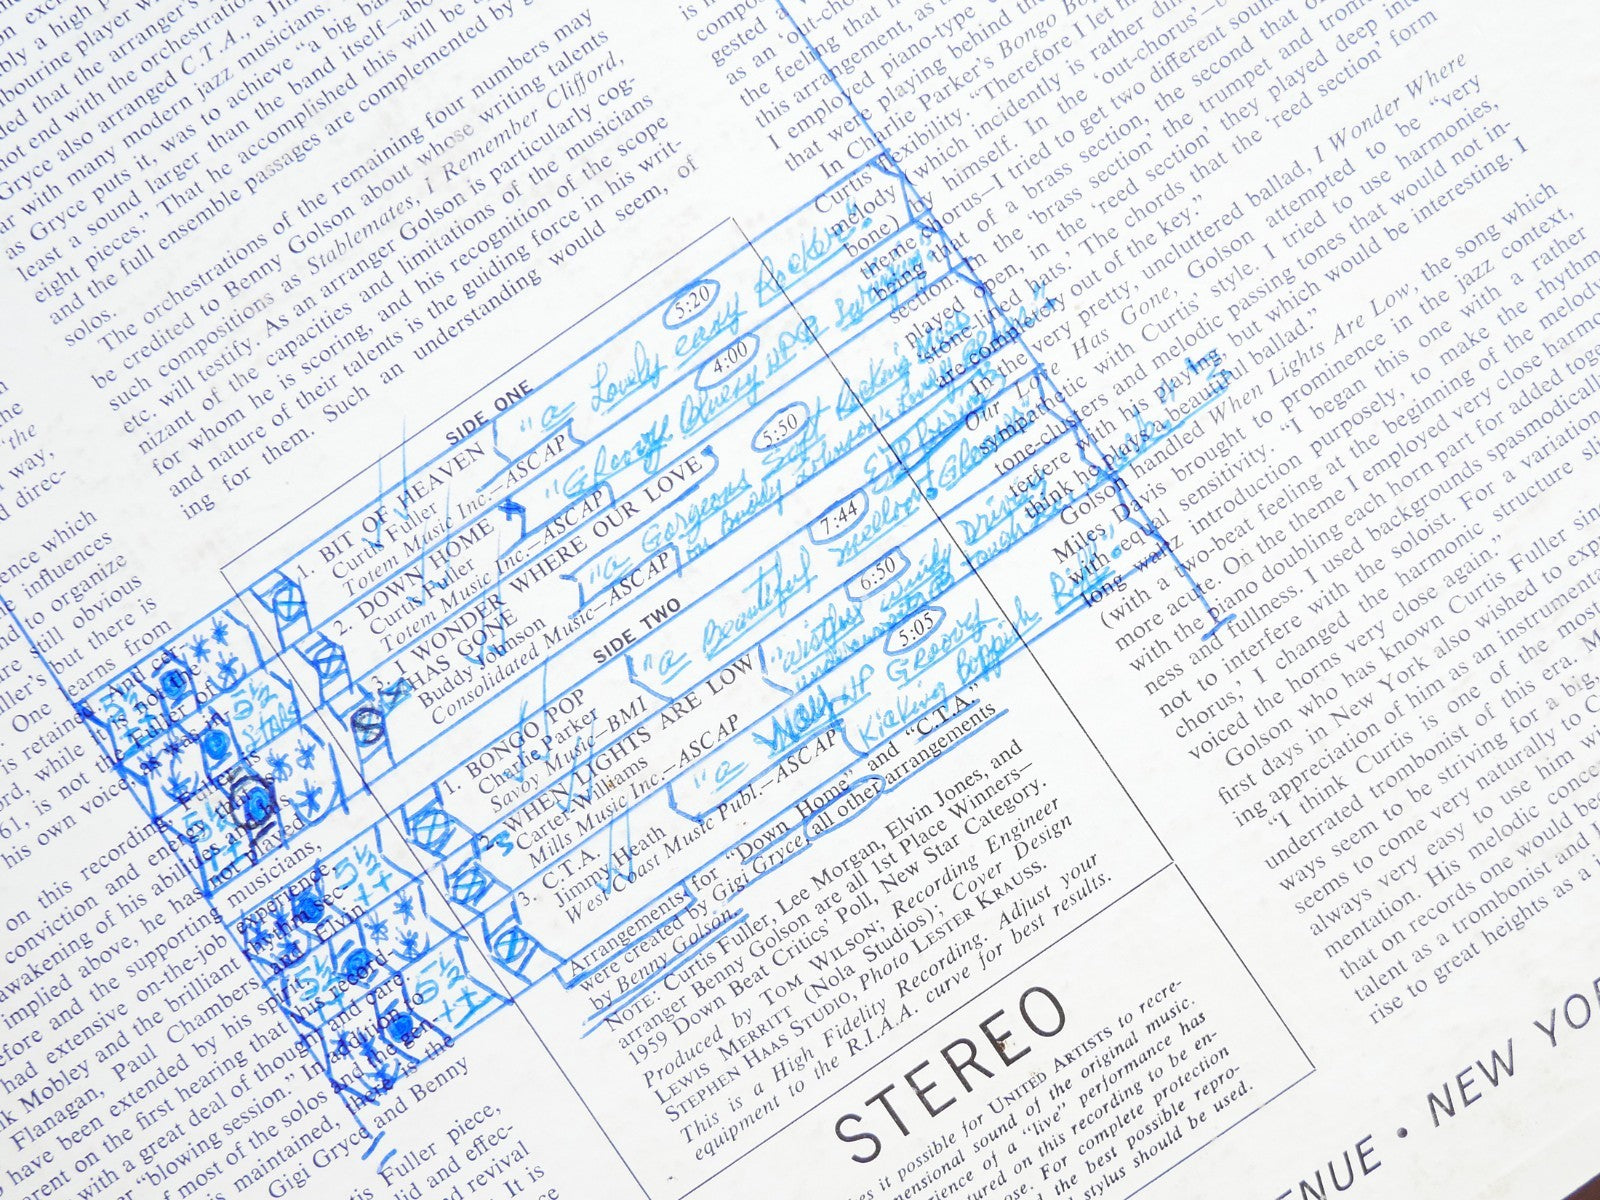 bly a high p
bourine player w
ded that the arranger's
not end with the orchestration
Gryce also arranged C.T.A., a Jim
ar with many modern jazz musicians.
as Gryce puts it, was to achieve "a big ba
least a sound larger than the band itself—abo
eight pieces." That he accomplished this will be a
and the full ensemble passages are complemented by g
solos.
The orchestrations of the remaining four numbers may
be credited to Benny Golson about whose writing talents
such compositions as Stablemates, I Remember Clifford,
etc. will testify. As an arranger Golson is particularly cog-
nizant of the capacities and limitations of the musicians
for whom he is scoring, and his recognition of the scope
and nature of their talents is the guiding force in his writ-
ing for them. Such an understanding would seem, of
is no
compos
gested a
as an 'out-cho
the feeling that
this arrangement, as
I employed piano-type
that were playing behind the
In Charlie Parker's Bongo Bop
Curtis' flexibility. "Therefore I let
melody (which incidently is rather di
bone) by himself. In the 'out-chorus'—b
theme chorus—I tried to get two different soun
being that of a brass section, the second that o
section in the 'brass section' the trumpet and trom
played open, in the 'reed section' they played deep into
'stone lined hats.' The chords that the 'reed section' form
are completely out of the key."
In the very pretty, uncluttered ballad, I Wonder Where
Our Love Has Gone, Golson attempted to be "very
sympathetic with Curtis' style. I tried to use harmonies,
tone-clusters and melodic passing tones that would not in-
terfere with his playing but which would be interesting. I
think he plays a beautiful ballad."
Golson handled When Lights Are Low, the song which
Miles Davis brought to prominence in the jazz context,
with equal sensitivity. "I began this one with a rather
long waltz introduction purposely, to make the rhythm
(with a two-beat feeling at the beginning of the melody
more acute. On the theme I employed very close harmo
with the piano doubling each horn part for added toge
ness and fullness. I used backgrounds spasmodically
not to interfere with the soloist. For a variation
chorus,' I changed the harmonic structure sli
voiced the horns very close again."
Golson who has known Curtis Fuller sin
first days in New York also wished to exp
ing appreciation of him as an instrumenta
"I think Curtis is one of the most
underrated trombonist of this era. M
ways seem to be striving for a big,
seems to come very naturally to C
always very easy to use him w
mentation. His melodic conce
that on records one would be
talent as a trombonist and
rise to great heights as a
SIDE ONE
1. BIT OF HEAVEN 5:20
"a Lovely easy Rocker!"
Curtis Fuller
Totem Music Inc.—ASCAP
2. DOWN HOME 4:00
"Groovy Bluesy
Curtis Fuller
Totem Music Inc.—ASCAP
3. I WONDER WHERE OUR LOVE
HAS GONE 5:50
"a Gorgeous Soft Rocking Mood
on Buddy Johnson's Lovely
Buddy Johnson
Consolidated Music—ASCAP
SIDE TWO
1. BONGO BOP 7:44
"a Beautiful Mellow
Charlie Parker
Savoy Music—BMI
2. WHEN LIGHTS ARE LOW 6:50
"wistful
understated
Carter-Williams
Mills Music Inc.—ASCAP
3. C.T.A. 5:05
"a Groovy
Kicking Boppish Riff."
Jimmy Heath
West Coast Music Publ.—ASCAP
5½
Stars
5½
++
5½
+
5½
+
5½
++
Arrangements for "Down Home" and "C.T.A."
were created by Gigi Gryce, all other arrangements
by Benny Golson.
NOTE: Curtis Fuller, Lee Morgan, Elvin Jones, and
arranger Benny Golson are all 1st Place Winners—
1959 Down Beat Critics Poll, New Star Category.
Produced by TOM WILSON; Recording Engineer
LEWIS MERRITT (Nola Studios); Cover Design
STEPHEN HAAS STUDIO, Photo LESTER KRAUSS.
This is a High Fidelity Recording. Adjust your
equipment to the R.I.A.A. curve for best results.
STEREO
es it possible for UNITED ARTISTS to recre-
mensional sound of the original music.
erience of a "live" performance has
tured on this recording to be en-
ose. For complete protection
d the best possible repro-
stylus should be used.
'the
way,
d direc-
ence which
influences
nd to organize
are still obvious
but there is
earns from
One
is retained
ord, while it is not the
61, is not the Fuller of
his own voice, as
And cer-
on this recording, Fuller is
conviction and energy
awakening of his abilities
implied above, he has not played
efore and the supporting musicians,
had extensive on-the-job experience
nk Mobley and the brilliant rhythm sec-
Flanagan, Paul Chambers and Elvin
have been extended by his spirit
parent on the first hearing that this record-
with a great deal of thought and care.
r "blowing session." In addition to
of most of the solos and the gen-
is maintained, there is the
Gigi Gryce and Benny
tis Fuller piece,
lid and effec-
nd revival
It is
ENUE • NEW YO